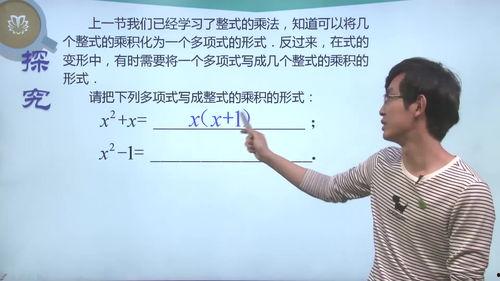 探究
上一节我们已经学习了整式的乘法，知道可以将几
个整式的乘积化为一个多项式的形式．反过来，在式的
变形中，有时需要将一个多项式写成几个整式的乘积的
形式．
请把下列多项式写成整式的乘积的形式：
x²+x= x(x+1) ；
x²−1= ．